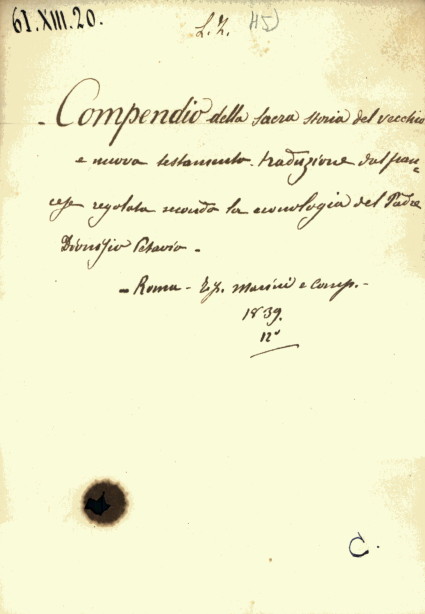 61.XIII.20.
L. Z. 45)
- Compendio della sacra storia del vecchio
e nuovo testamento. traduzione dal fran=
cese regolata secondo la cronologia del Padre
Dionisio Petavio -
- Roma - Tip. Marini e Comp. -
1839.
12°
C.